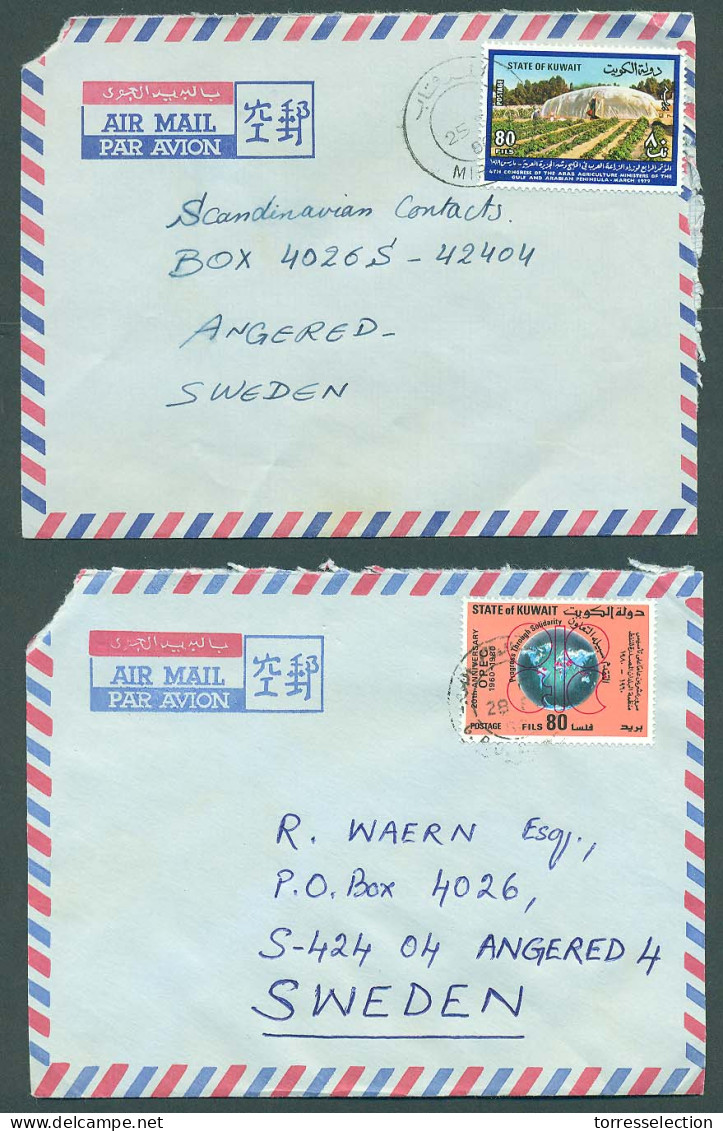 بالبريد الجوي
AIR MAIL
PAR AVION
空郵
25
STATE OF KUWAIT دولة الكويت
POSTAGE
80
FILS
٨٠
4TH CONGRESS OF THE ARAB AGRICULTURE MINISTERS OF THE
GULF AND ARABIAN PENINSULA - MARCH 1979
Scandinavian Contacts.
BOX 4026 S - 42404
ANGERED-
SWEDEN
بالبريد الجوي
AIR MAIL
PAR AVION
空郵
STATE of KUWAIT دولة الكويت
20th ANNIVERSARY
OPEC
1960-1980
Progress Through Solidarity
١٩٦٠ - ١٩٨٠
POSTAGE FILS 80 فلسا بريد
28
R. WAERN Esq.,
P.O. Box 4026,
S-424 04 ANGERED 4
SWEDEN
torresselection